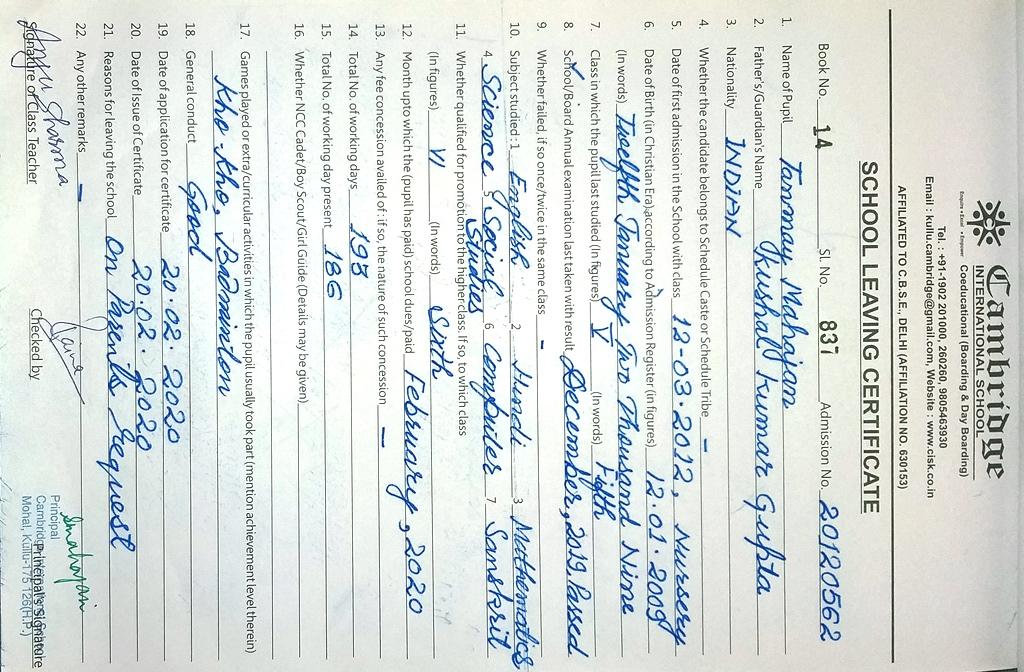 Cambridge
INTERNATIONAL SCHOOL
Coeducational (Boarding & Day Boarding)
Tel. : +91-1902 201000, 260260, 9805463930
Email : kullu.cambridge@gmail.com, Website : www.cisk.co.in
AFFILIATED TO C.B.S.E., DELHI (AFFILIATION NO. 630153)
SCHOOL LEAVING CERTIFICATE
Book No. 14 SL No. 837 Admission No. 20120562
1. Name of Pupil Tanmay Mahajan
2. Father's/Guardian's Name Kushal Kumar Gupta
3. Nationality INDIAN
4. Whether the candidate belongs to Schedule Caste or Schedule Tribe -
5. Date of first admission in the School with class 12-03-2012, Nursery
6. Date of Birth (in Christian Era) according to Admission Register (in figures) 12.01.2009
(In words) Twelfth January Two Thousand Nine
7. Class in which the pupil last studied (In figures) V (In words) Fifth
8. School/Board Annual examination last taken with result December, 2019, Passed
9. Whether failed, if so once/twice in the same class -
10. Subject studied : 1 English 2 Hindi 3 Mathematics
4. Science 5 Social Studies 6 Computer 7 Sanskrit
11. Whether qualified for promotion to the higher class. If so, to which class
(In figures) VI (In words) Sixth
12. Month upto which the (pupil has paid) school dues/paid February, 2020
13. Any fee concession availed of : if so, the nature of such concession -
14. Total No. of working days 195
15. Total No. of working day present 186
16. Whether NCC Cadet/Boy Scout/Girl Guide (Details may be given)
17. Games played or extra/curricular activities in which the pupil usually took part (mention achievement level therein)
Kho-Kho, Badminton
18. General conduct Good
19. Date of application for certificate 20.02.2020
20. Date of Issue of Certificate 20.02.2020
21. Reasons for leaving the school On Parents request
22. Any other remarks -
Anju Sharma
Signature of Class Teacher Checked by Principal's Signature
Principal
Cambridge International School
Mohal, Kullu-175 126 (H.P.)